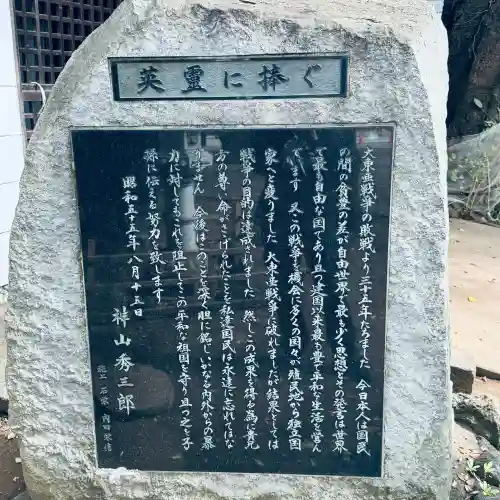 英霊に捧ぐ
大東亜戦争の敗戦より三十五年なりました 今日日本人は国民
の間の貧豊の差が自由世界で最も少く思想とその発言は世界
で最も自由な国であり且つ建国以来最も豊で平和な生活を営ん
でます 又この戦争を機会に多くの国々が殖民地から独立国
家へと変りました 大東亜戦争は破れましたが結果としては
戦争の目的は達成されました 然しこの成果を得る為に貴兄
方の尊い命がさゝげられたことを私達国民は永遠に忘れてはな
りません 今後はこのことを深く胆に銘じいかなる内外からの暴
力に対してもこれを阻止してこの平和な祖国を守り且つ之を子
孫に伝える努力を致します
昭和五十五年八月十五日
神山秀三郎
施工 石家 内田